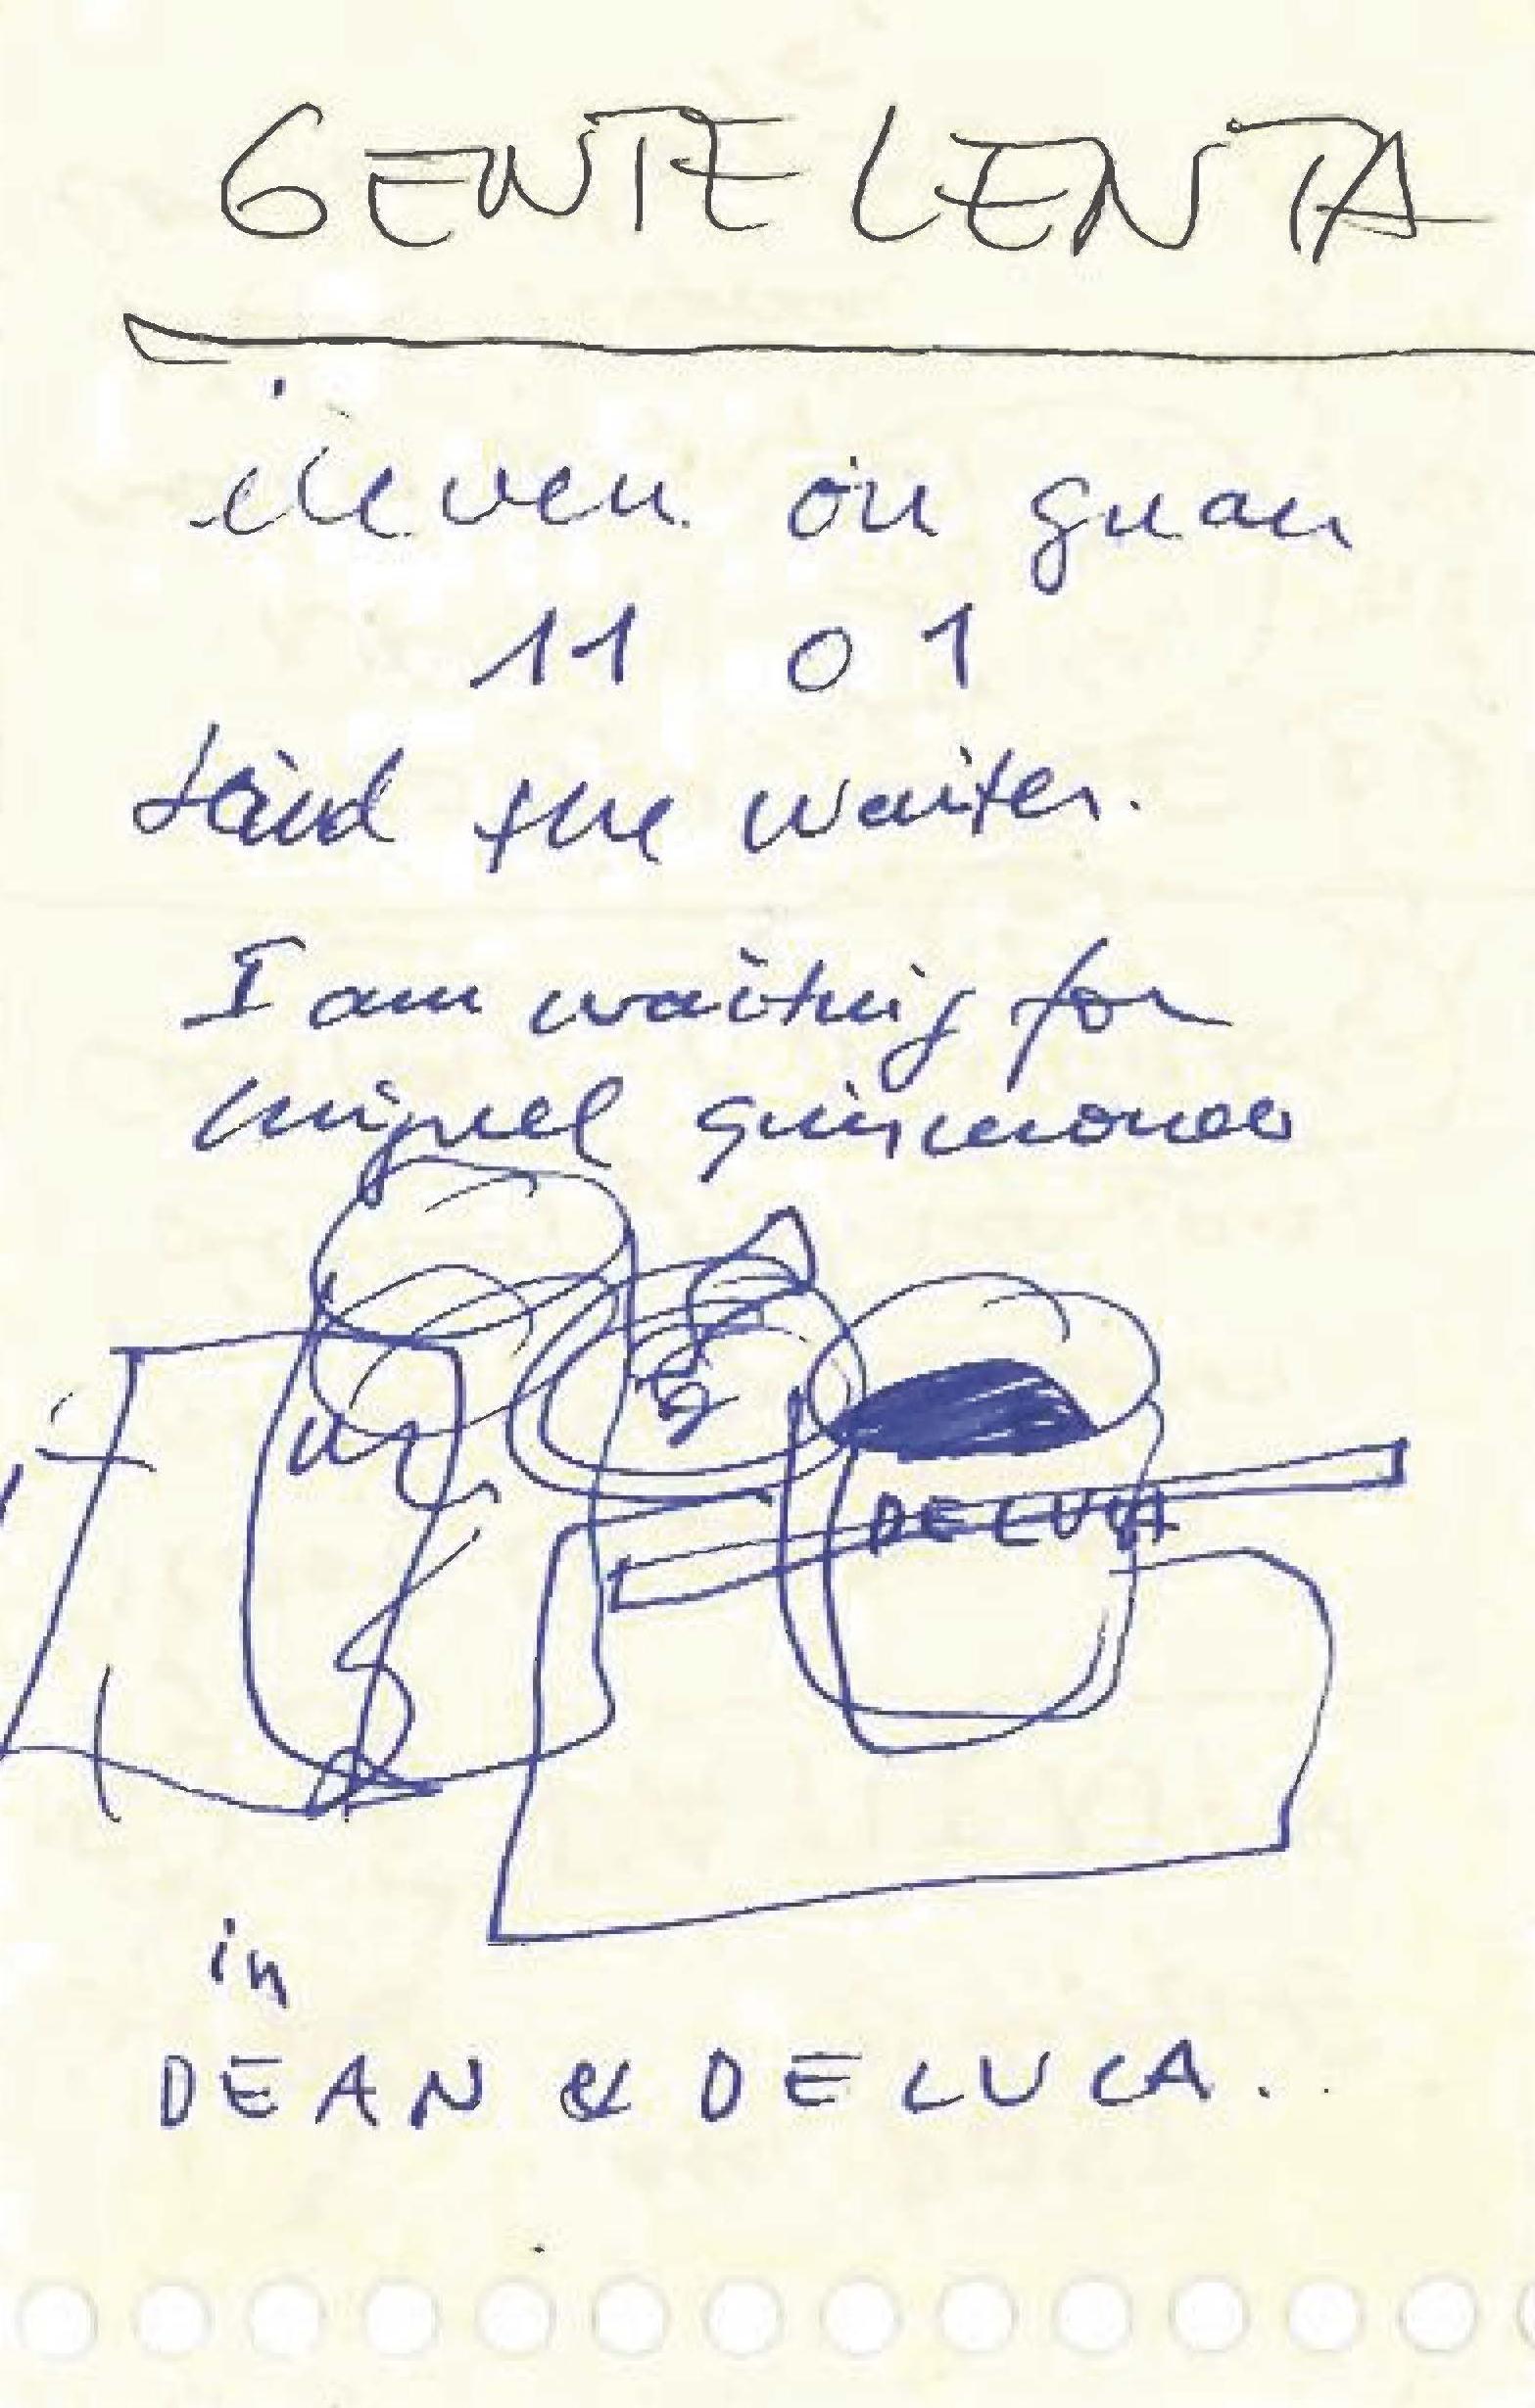 GENTE LENTA
eleven on guan
11 01
the waiter.
I am waiting for
miguel
DELUCA
in
DEAN & DELUCA.